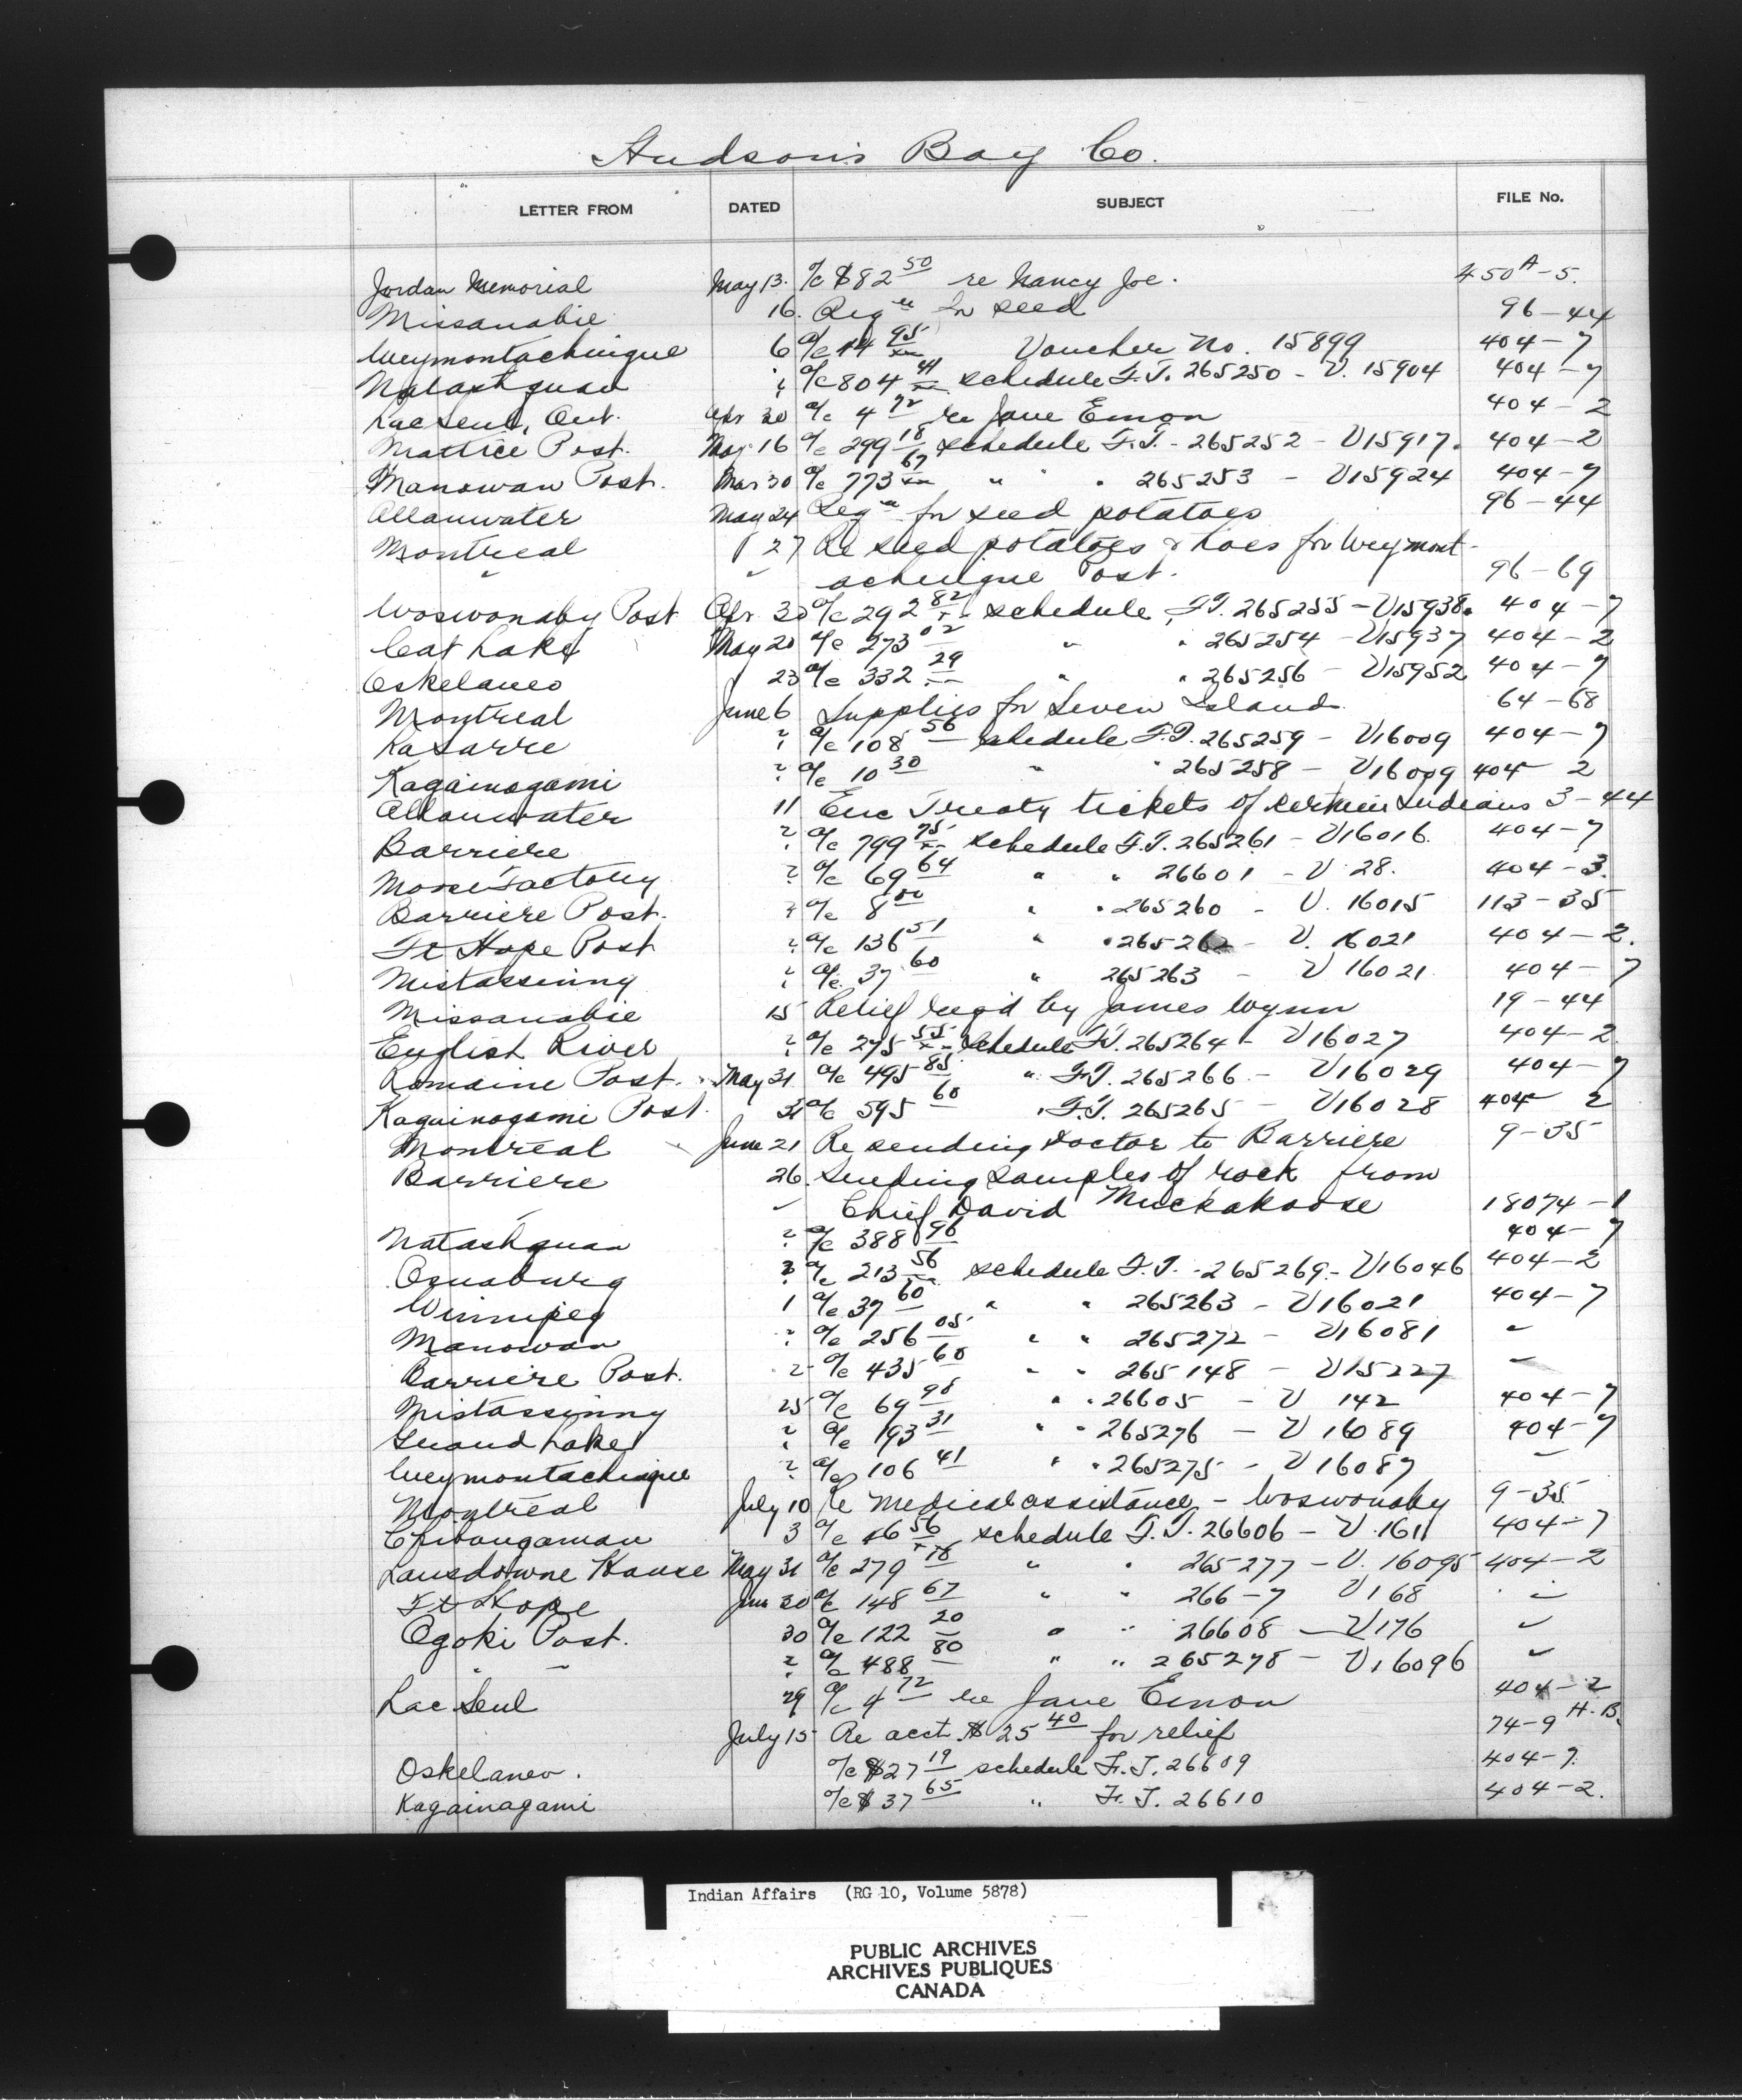 Hudson's Bay Co.
LETTER FROM DATED SUBJECT FILE No.
Jordan Memorial May 13. a/c $82 50 re Nancy Joe. 450 A-5.
Missanabie 16. Reqn for seed 96-44
Weymontachingue 6 a/c 14 95 Voucher No. 15899 404-7
Natashquan " a/c 804 44 schedule F.T. 265250 - V. 15904 404-7
Lac Seul, Ont. Apr 30 a/c 4 72 re Jane Emon 404-2
Mattice Post. May 16 a/c 299 18 schedule F.T. - 265252 - V15917. 404-2
Manowan Post. Mar 30 a/c 773 67 " " 265253 - V15924 404-7
Allanwater May 24 Reqn for seed potatoes 96-44
Montreal " 27 Re seed potatoes & hoes for Weymont-
" " achingue Post. 96-69
Woswonaby Post Apr. 30 a/c 292 82 schedule F.T. 265255 - V15938. 404-7
Cat Lake May 20 a/c 273 02 " " 265254 - V15937 404-2
Oskelaneo " 23 a/c 332 29 " " 265256 - V15952 404-7
Montreal June 6 Supplies for Seven Islands 64-68
La Sarre " a/c 108 56 schedule F.T. 265259 - V16009 404-7
Kagainagami " a/c 10 30 " " 265258 - V16009 404-2
Allanwater 11 Enc Treaty tickets of certain Indians 3-44
Barriere " a/c 799 75 schedule F.T. 265261 - V16016. 404-7
Moose Factory " a/c 69 64 " " 26601 - V 28. 404-3.
Barriere Post. " a/c 8 00 " " 265260 - V. 16015 113-35
Ft Hope Post " a/c 136 51 " " 265262 - V. 16021 404-2.
Mistassinny " a/c 37 60 " 265263 - V 16021 404-7
Missanabie 15 Relief req'd by James Wynn 19-44
English River " a/c 275 55 schedule F.T. 265264 - V16027 404-2
Romaine Post. May 31 a/c 495 85 " F.T. 265266 - V16029 404-7
Kagainagami Post. 31 a/c 595 60 " F.T. 265265 - V16028 404-2
Montreal June 21 Re sending Doctor to Barriere 9-35
Barriere 26. Sending samples of rock from
" " Chief David Muckakoose 18074-1
Natashquan " a/c 388 96 404-7
Osnaburg " a/c 213 56 schedule F.T. 265269 - V16046 404-2
Winnipeg 1 a/c 37 60 " " 265263 - V16021 404-7
Manowan " a/c 256 05 " " 265272 - V16081 "
Barriere Post. " a/c 435 60 " " 265148 - V15227 "
Mistassinny 25 a/c 69 98 " " 26605 - V 142 404-7
Grand Lake " a/c 193 31 " " 265276 - V 16089 404-7
Weymontachingue " a/c 106 41 " " 265275 - V 16087 "
Montreal July 10 Re medical assistance - Woswonaby 9-35
Chibougamau 3 a/c 16 56 schedule F.T. 26606 - V. 161 404-7
Lansdowne House May 31 a/c 279 18 " " 265277 - V. 16095 404-2
Ft Hope Jun 30 a/c 148 67 " " 266-7 V168 "
Ogoki Post. 30 a/c 122 20 " " 26608 - V176 "
" " " a/c 488 80 " " 265278 - V16096 "
Lac Seul 29 a/c 4 72 re Jane Emon 404-2
July 15 Re acct. $25 40 for relief 74-9 H.B.
Oskelaneo. a/c $27 19 schedule F.T. 26609 404-7.
Kagainagami a/c $37 65 " F.T. 26610 404-2.
Indian Affairs (RG 10, Volume 5878)
PUBLIC ARCHIVES
ARCHIVES PUBLIQUES
CANADA